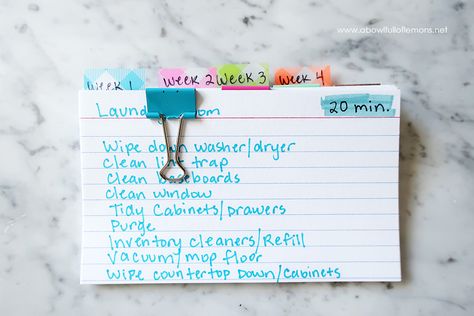 www.abowlfulloflemons.net
Week 1
Week 2
Week 3
Week 4
20 min.
Wipe down washer/dryer
Clean lint trap
Clean baseboards
Clean window
Tidy Cabinets/Drawers
Purge
Inventory cleaners/Refill
Vacuum/mop floor
Wipe countertop down/Cabinets